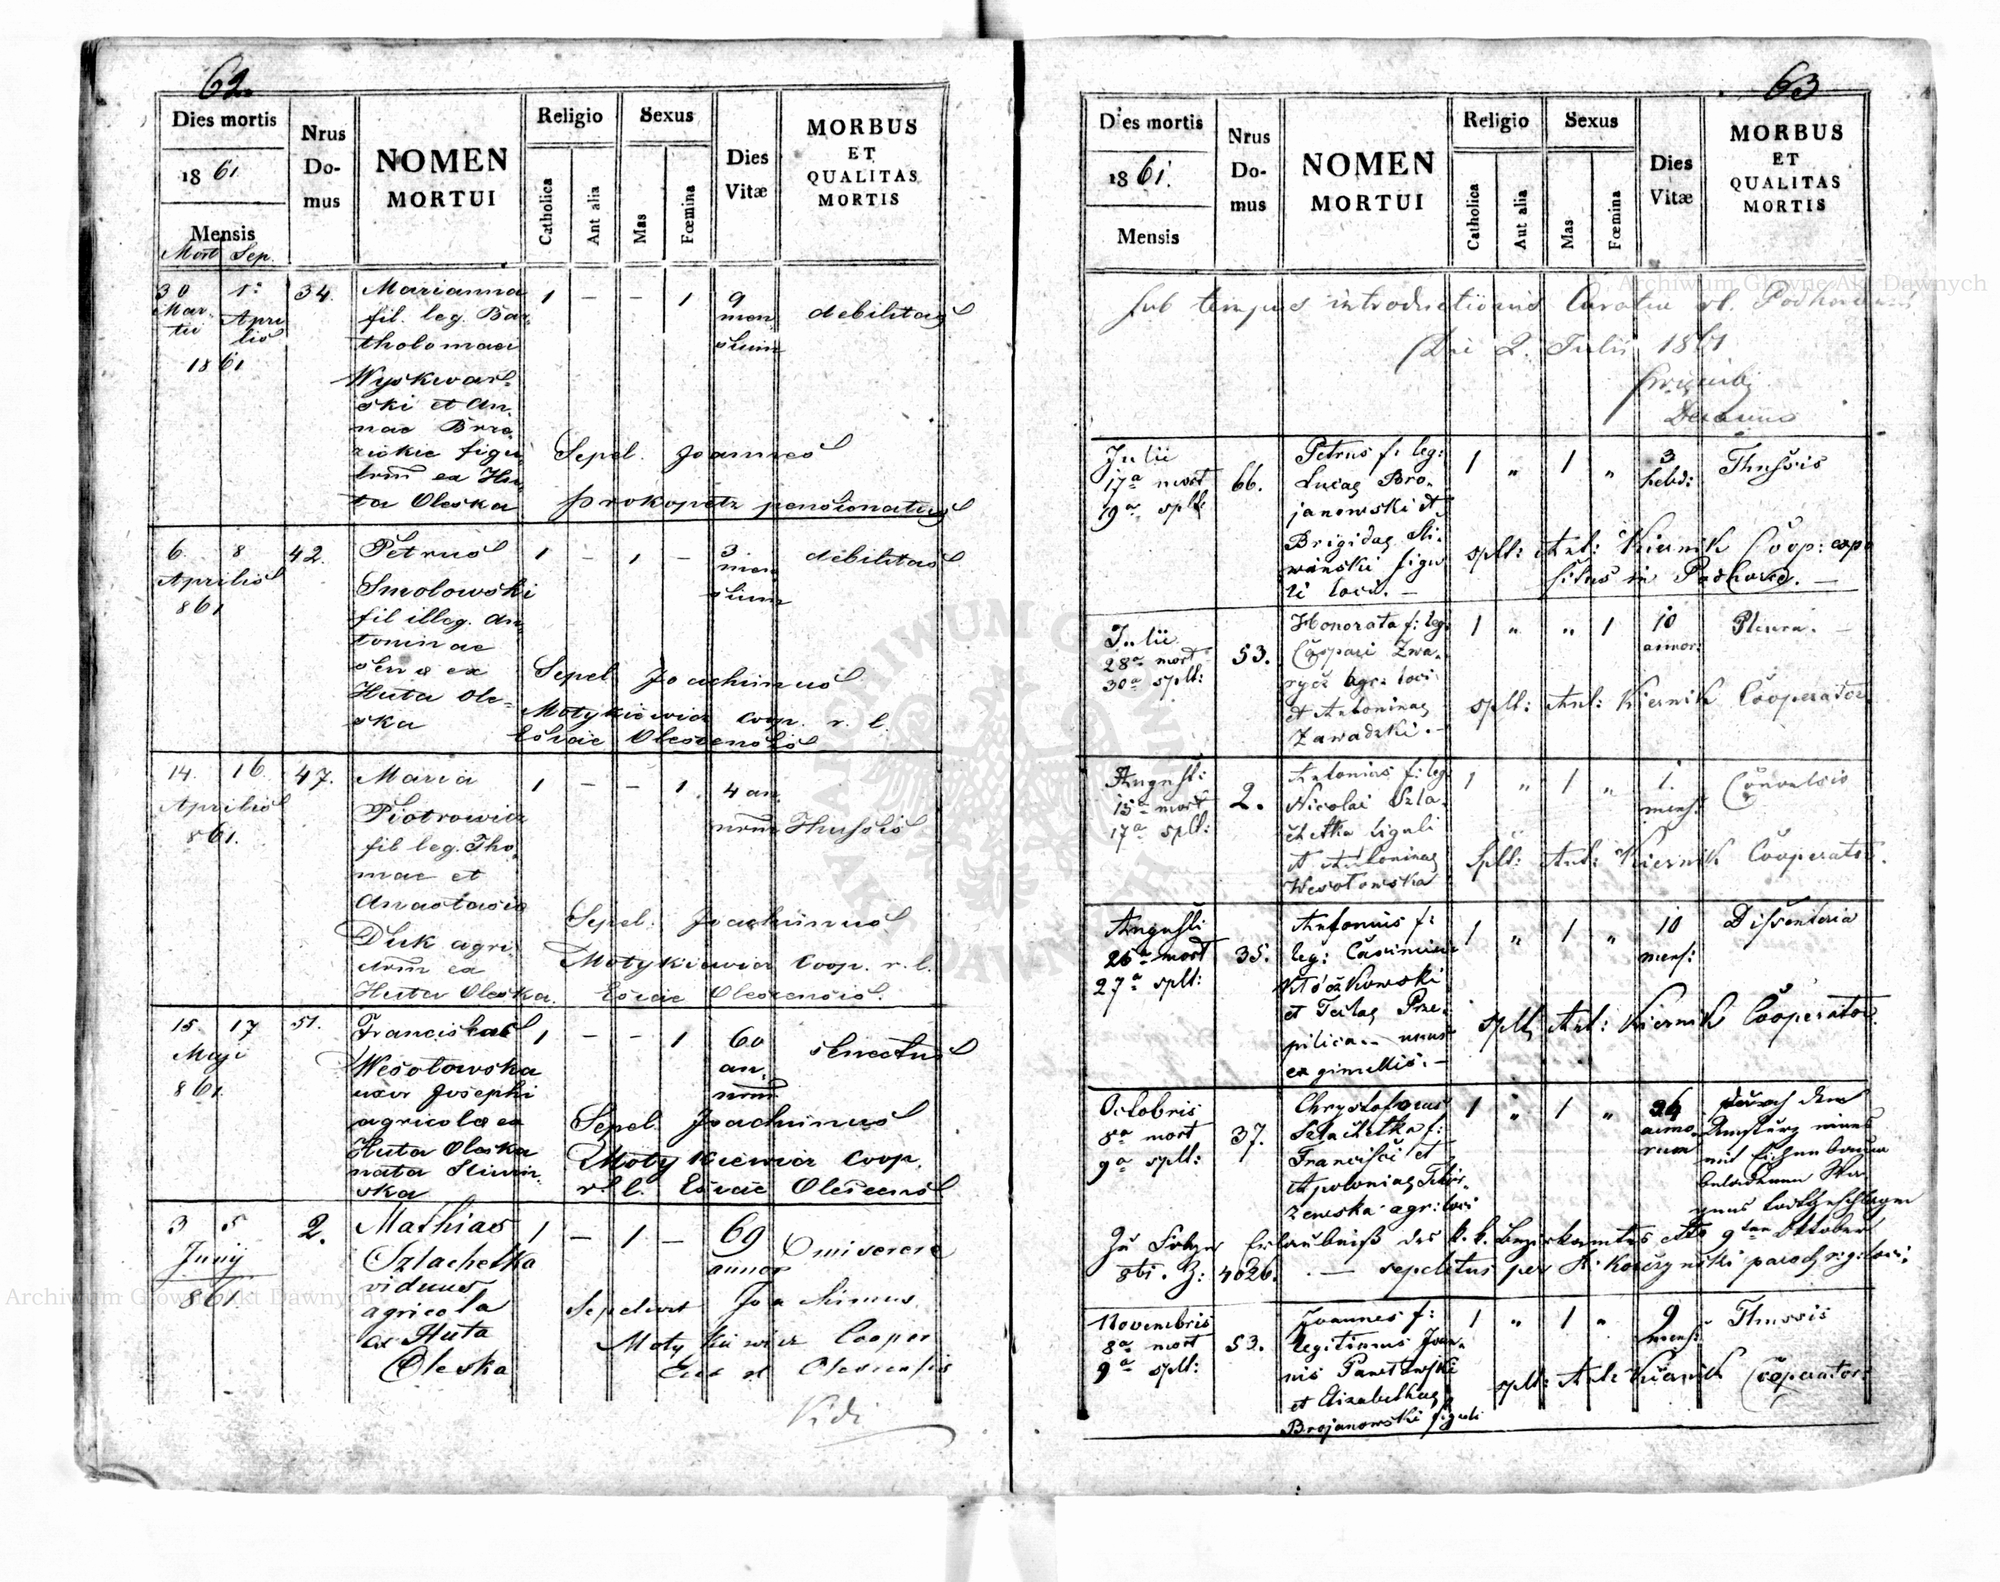 62.
Dies mortis
1861
Mensis
Mort Sep.
Nrus Do-mus
NOMEN
MORTUI
Religio
Catholica
Aut alia
Sexus
Mas
Fœmina
Dies Vitæ
MORBUS
ET
QUALITAS
MORTIS
30 Mar-tii
1: Apri lis
1861
34.
Marianna
fil. leg. Bar-
tholomaei
Wyskwar-
ski et An-
nae
figu-
ex Hu-
ta Oleska
1 – – 1
9 men sium
debilitas
Sepel. Joannes
Prokopetz pensionatus
6. 8
Aprilis
861
42.
Petrus
Smolowski
fil illeg. An-
toninae
ex
Huta Ole-
ska
1 – 1 –
3 men sium
debilitas
Sepel Joachimus
Motykiewicz coop. r. l.
Olescensis
14. 16
Aprilis
861.
47.
Maria
Piotrowicz
fil leg. Tho-
mae et
Anastasia
Duk agri-
ex
Huta Oleska.
1 – – 1
4 an-
Thussis
Sepel. Joachimus
Motykiewicz Coop. r. l.
Olescensis.
15. 17
Maji
861
51.
Franciskas
Wesołowska
uxor Josephi
agricola ex
Huta Oleska
nata
ska
1 – – 1
60 an-
senectus
Sepel. Joachimus
Motykiewicz Coop.
r. l.
3 5
Junij
861
2.
Mathias
Szlachetka
viduus
agricola
ex Huta
Oleska
1 – 1 –
69 annor
miserere
Joachimus
Motykiewicz Cooper
Olescensis
Vidi
63
Dies mortis
1861.
Mensis
Nrus Do-mus
NOMEN
MORTUI
Religio
Catholica
Aut alia
Sexus
Mas
Fœmina
Dies Vitæ
MORBUS
ET
QUALITAS
MORTIS
Sub tempus introductionis
2. Julii 1861
Decanus
Julii
17ª mort
19ª splt:
66.
Petrus f: leg:
Lucae Bro-
janowski et
Brigidae Sli-
winski figu
li loci. –
1 „ 1 „
3 hebd:
Thussis
splt: Ant: Kiernik Cöop: expo
situs in Podhorce. –
Julii
28ª mort
30ª splt:
53.
Honorata f: leg:
Caspari Zwa-
rycz agr: loci
et Antoninae
Zawadzki. –
1 „ „ 1
10 annor:
Pleura. –
splt: Ant: Kiernik Cöoperator
Augusti:
15ª mort
17ª splt:
2.
Antonius f: leg:
Nicolai Szla-
chetka figuli
et Antoninae
Wesołowska
1 „ 1 „
1. mens:
Convulsio
splt: Ant: Kiernik Cöoperator.
Augusti
26ª mort
27ª splt:
35.
Antonius f:
leg: Casimiri
Młóżkowski
et Teclae Prze-
pilica – unus
ex gimellis. –
1 „ 1 „
10 mens:
Dissenteria
splt: Ant: Kiernik Cöoperator.
Octobris
8ª mort
9ª splt:
37.
Chrystoforus
Szlachetka f:
Francisci et
Apoloniae
agr: loci
1 „ 1 „
26 anno-rum
durch den
Umsturz eines
mit Eichenbaum
beladenen Wa-
gens todtgeschlagen
Zu Folge Erlaubniß des k. k. Bezirksamtes dto 9ten Oktober
861. Z: 4026. – sepelitus per
Novembris
8ª mort
9ª splt:
53.
Joannes f:
legitimus Joan-
nis
et Elisabethae
Brojanowski figuli
1 „ 1 „
9 mens:
Thussis
splt: Ant: Kiernik Cöoperator:
Archiwum Główne Akt Dawnych
Archiwum Główne Akt Dawnych
Archiwum Główne Akt Dawnych
ARCHIWUM GŁÓWNE AKT DAWNYCH